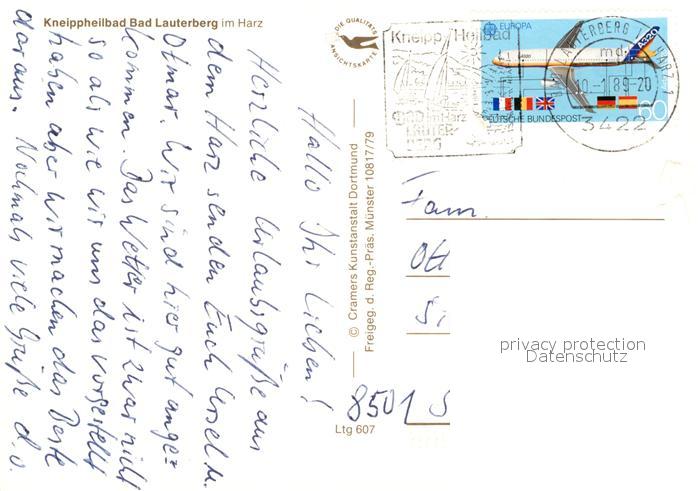 Kneippheilbad Bad Lauterberg im Harz
DIE QUALITÄTS
ANSICHTSKARTE
Hallo Ihr Lieben!
Herzliche Urlaubsgrüße aus
dem Harz senden Euch Ursel u.
Otmar. Wir sind hier gut ange=
kommen. Das Wetter ist zwar nicht
so als wie wir uns das vorgestellt
haben aber wir machen das Beste
daraus. Nochmals viele Grüße d. o.
© Cramers Kunstanstalt Dortmund
Freigeg. d. Reg.-Präs. Münster 10817/79
Ltg 607
Kneipp Heilbad
BAD im Harz
LAUTER-
BERG
EUROPA
A320
60
DEUTSCHE BUNDESPOST
LAUTERBERG IM HARZ 1
md
10.-1.89-20
3422
Fam.
Ott
8501 S
privacy protection
Datenschutz